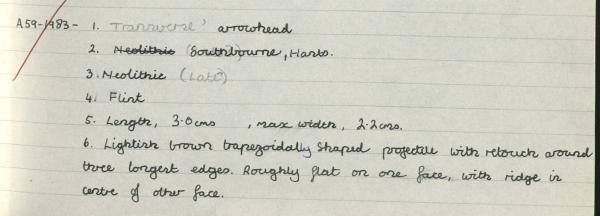 A59-1983- 1. 'Transverse' arrowhead
2. Neolithic (Southbourne, Hants.
3. Neolithic (Late)
4. Flint
5. Length, 3.0cms , max width, 2.2cms.
6. Lightish brown trapezoidally shaped projectile with retouch around
three longest edges. Roughly flat on one face, with ridge in
centre of other face.